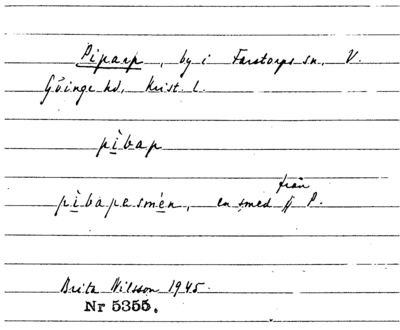 Piparp, by i Farstorps sn, V.
Göinge hd, Krist. l.
pìbap
från
pìbapesmén, en smed fr P.
Brita Nilsson 1945.
Nr 5355.